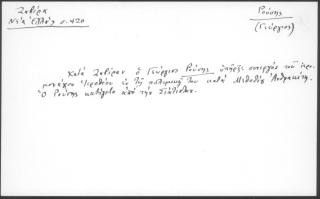 Ζαβίρα
Νέα Ἑλλὰς σ. 420
Ρούσης
(Γεώργιος)
Κατὰ Ζαβίραν ὁ Γεώργιος Ρούσης ὑπῆρξε συνεργὸς τοῦ ἱερο-
μονάχου Ἱεροθέου ἐν τῇ πολεμικῇ του κατὰ Μεθοδίου Ἀνθρακίτη.
Ὁ Ρούσης κατήγετο ἀπὸ τὴν Σιάτισταν.